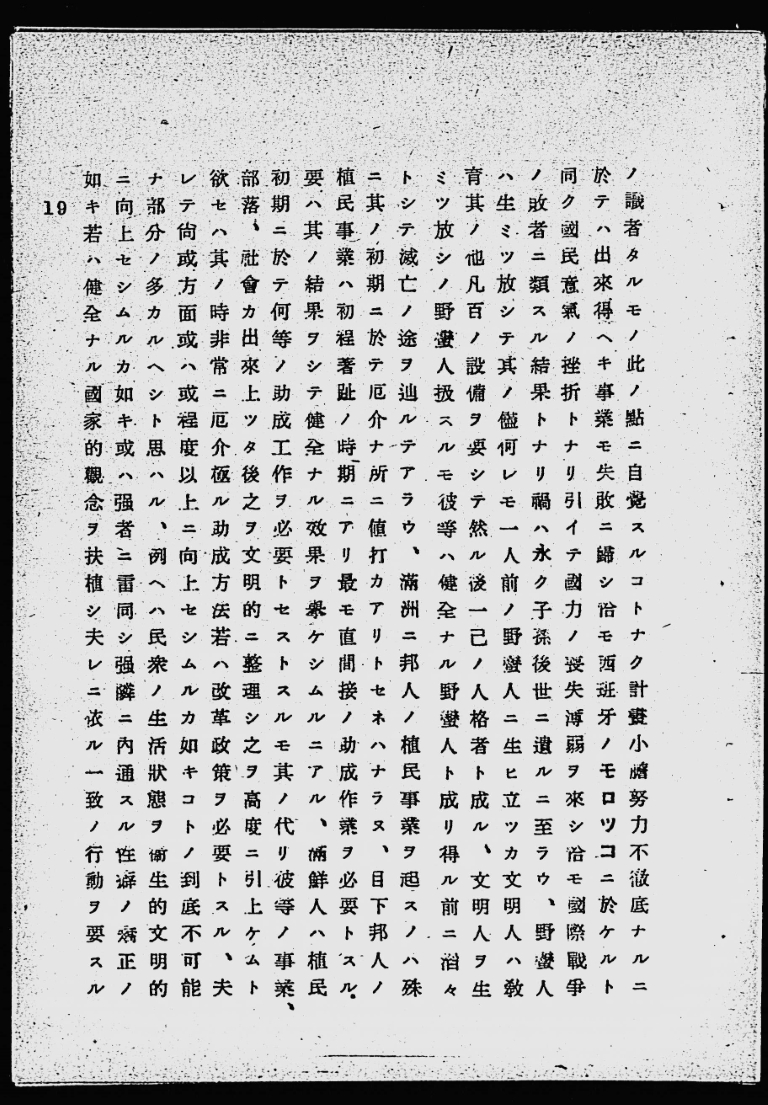 ノ識者タルモノ此ノ點ニ自覺スルコトナク計畫小膽努力不徹底ナルニ
於テハ出來得ヘキ事業モ失敗ニ歸シ恰モ西班牙ノモロツコニ於ケルト
同ク國民意氣ノ挫折トナリ引イテ國力ノ喪失薄弱ヲ來シ恰モ國際戰爭
ノ敗者ニ類スル結果トナリ禍ハ永ク子孫後世ニ遺ルニ至ラウ、野蠻人
ハ生ミツ放シテ其ノ儘何レモ一人前ノ野蠻人ニ生ヒ立ツカ文明人ハ敎
育其ノ他凡百ノ設備ヲ要シテ然ル後一己ノ人格者ト成ル、文明人ヲ生
ミツ放シノ野蠻人扱スルモ彼等ハ健全ナル野蠻人ト成リ得ル前ニ滔々
トシテ滅亡ノ途ヲ辿ルテアラウ、滿洲ニ邦人ノ植民事業ヲ起スノハ殊
ニ其ノ初期ニ於テ厄介ナ所ニ値打カアリトセネハナラス、目下邦人ノ
植民事業ハ初程著趾ノ時期ニアリ最モ直間接ノ助成作業ヲ必要トスル。
要ハ其ノ結果ヲシテ健全ナル效果ヲ擧ケシムルニアル、滿鮮人ハ植民
初期ニ於テ何等ノ助成工作ヲ必要トセストスルモ其ノ代リ彼等ノ事業、
部落、社會カ出來上ツタ後之ヲ文明的ニ整理シ之ヲ高度ニ引上ケムト
欲セハ其ノ時非常ニ厄介極ル助成方法若ハ改革政策ヲ必要トスル、夫
レテ尙或方面或ハ或程度以上ニ向上セシムルカ如キコトノ到底不可能
ナ部分ノ多カルヘシト思ハル、例ヘハ民衆ノ生活狀態ヲ衞生的文明的
ニ向上セシムルカ如キ或ハ强者ニ雷同シ强隣ニ內通スル性癖ノ矯正ノ
如キ若ハ健全ナル國家的觀念ヲ扶植シ夫レニ依ル一致ノ行動ヲ要スル
19